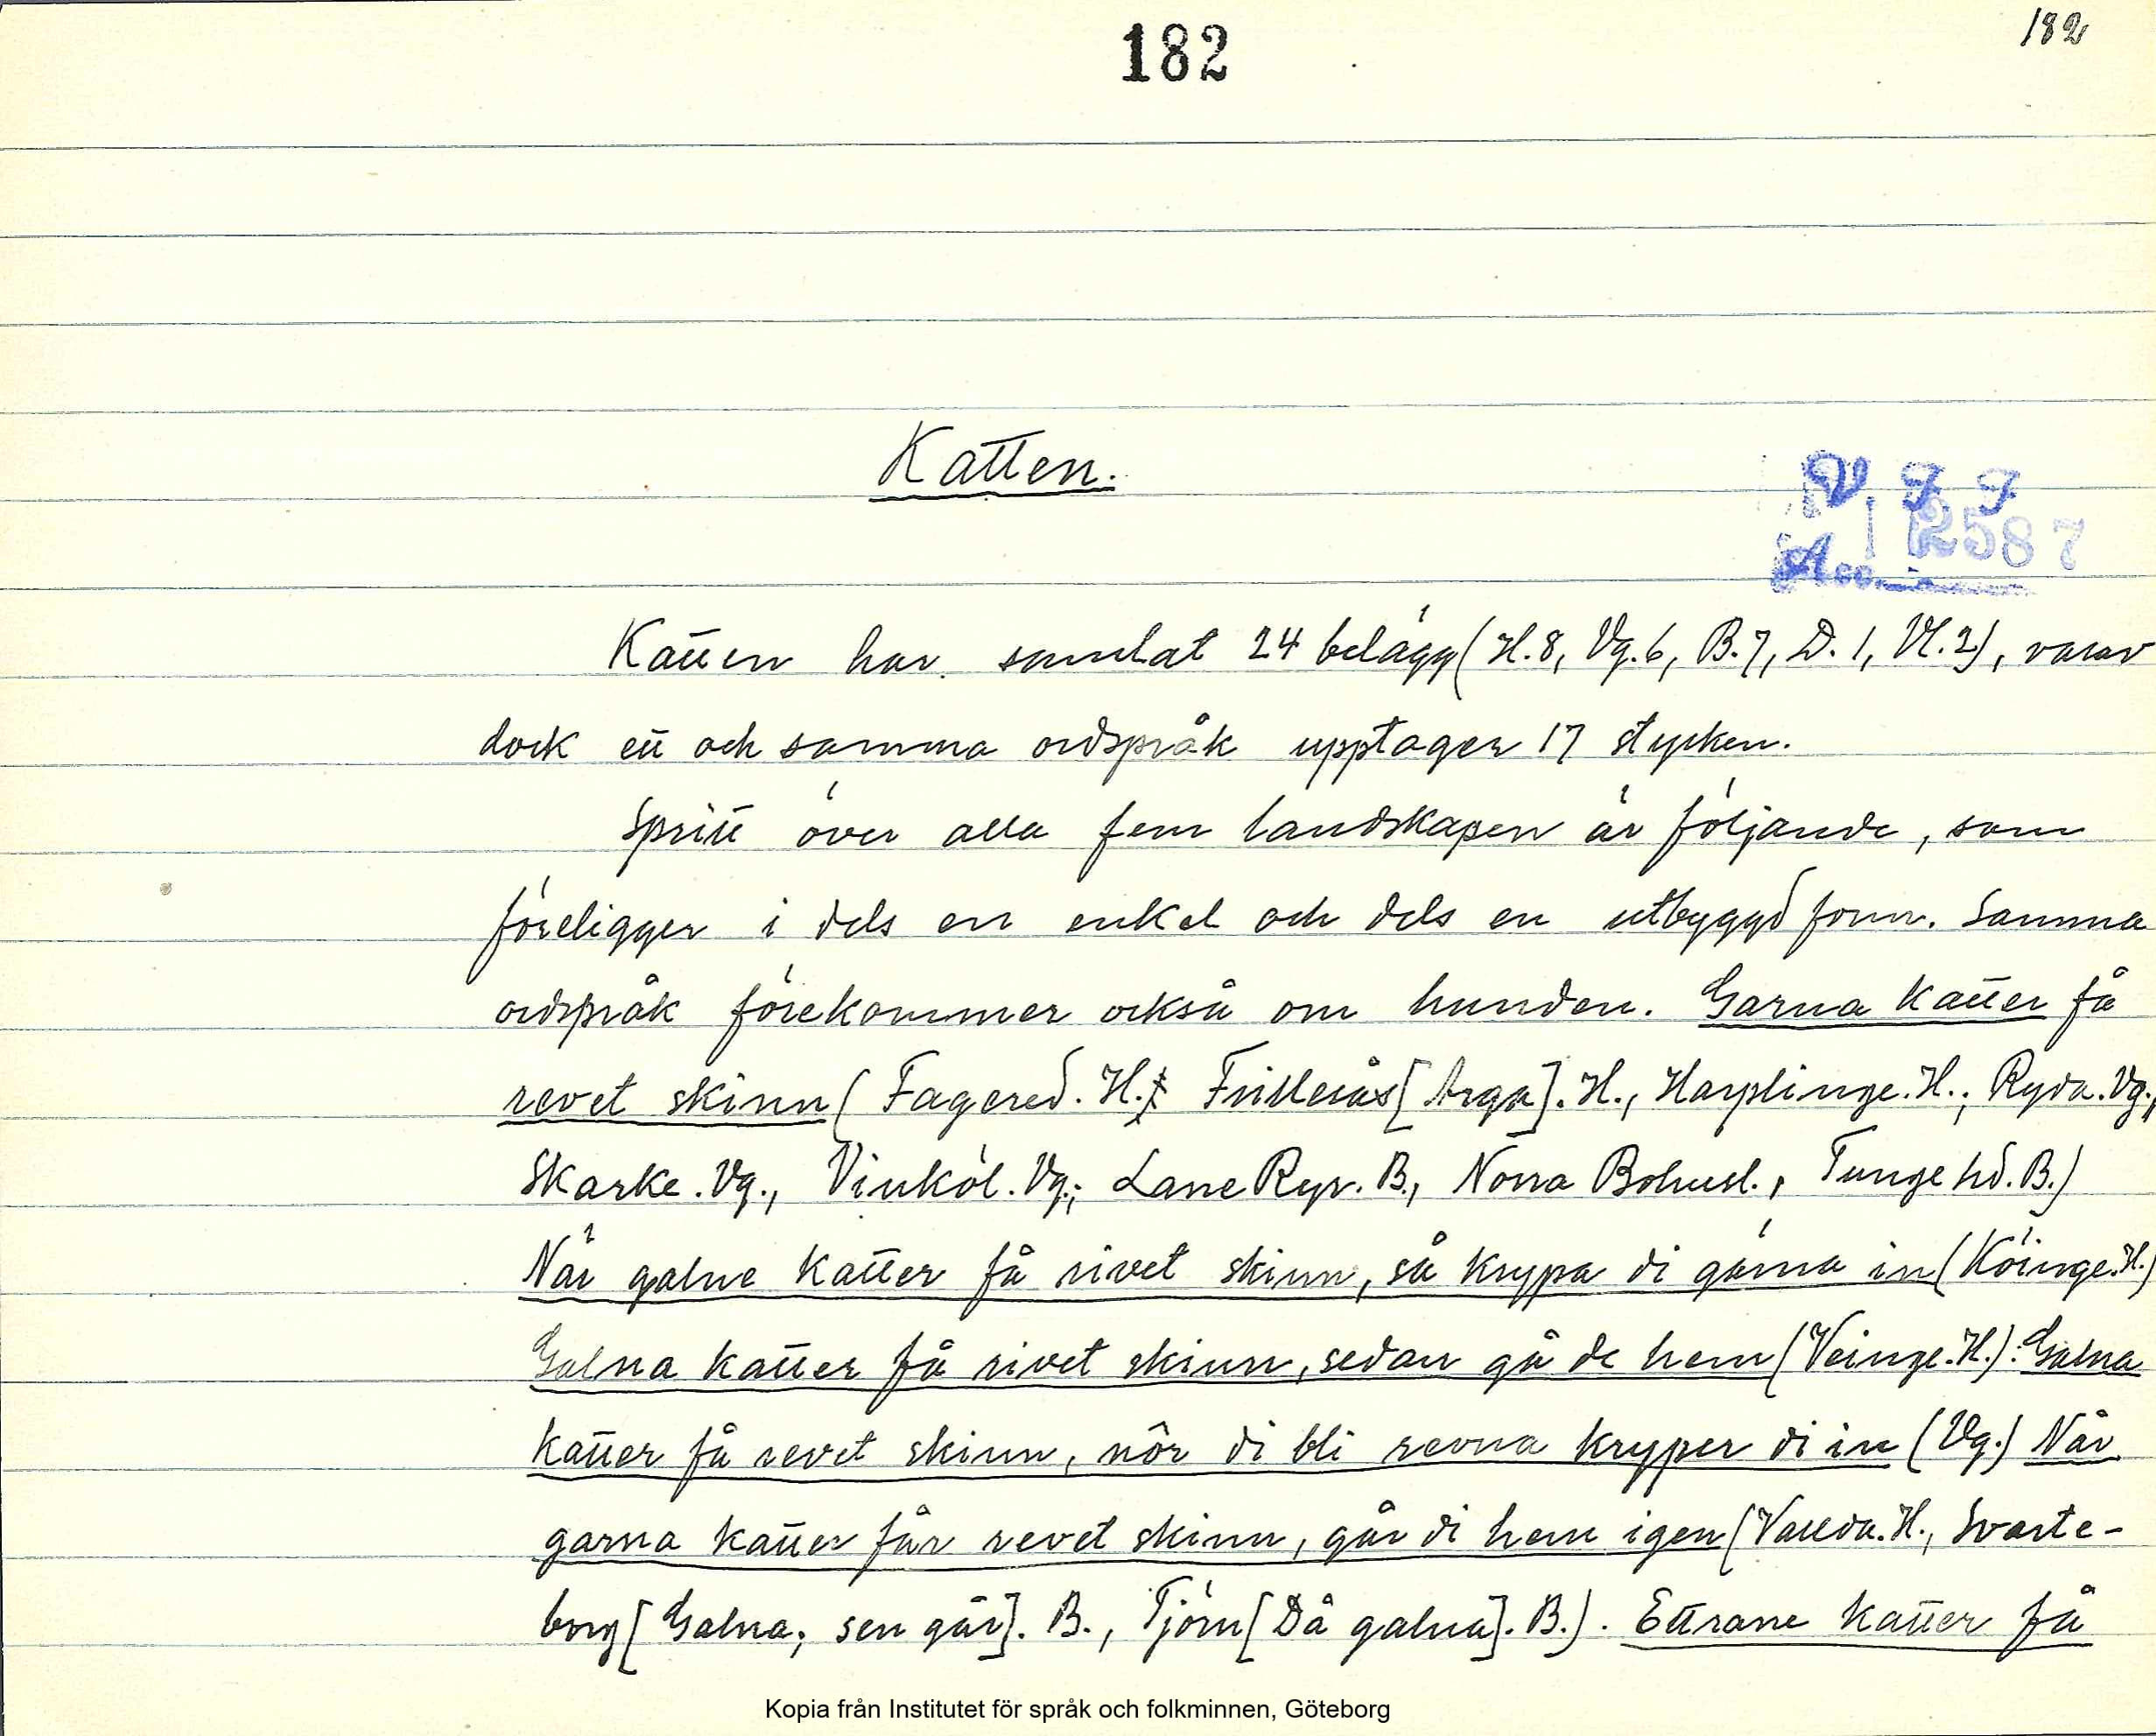 182
182
Katten.
V. F. F
Acc. 2587
Katten har samlat 24 belägg (H.8, Vg.6, B.7, D.1, Vl.2), varav
dock ett och samma ordspråk upptager 17 stycken.
Spritt över alla fem landskapen är följande, som
föreligger i dels en enkel och dels en utbyggd form. Samma
ordspråk förekommer också om hunden. Garna katter få
revet skinn (Fagered. H. Frillesås [Arga]. H., Harplinge. H., Ryda. Vg.,
Skarke. Vg., Vinköl. Vg.; Lane Ryr. B., Norra Bohusl., Tunge hd. B.)
När galne katter få rivet skinn, så krypa di gärna in (Köinge. H.)
Galna katter få rivet skinn, sedan gå de hem (Veinge. H.). Galna
katter få revet skinn, nôr di bli revna kryper di in (Vg.) När
garna katter får revet skinn, går di hem igen (Vallda. H., Svarte-
borg [Galna; sen går]. B., Tjörn [Då galna]. B.). Ettrane katter få
Kopia från Institutet för språk och folkminnen, Göteborg